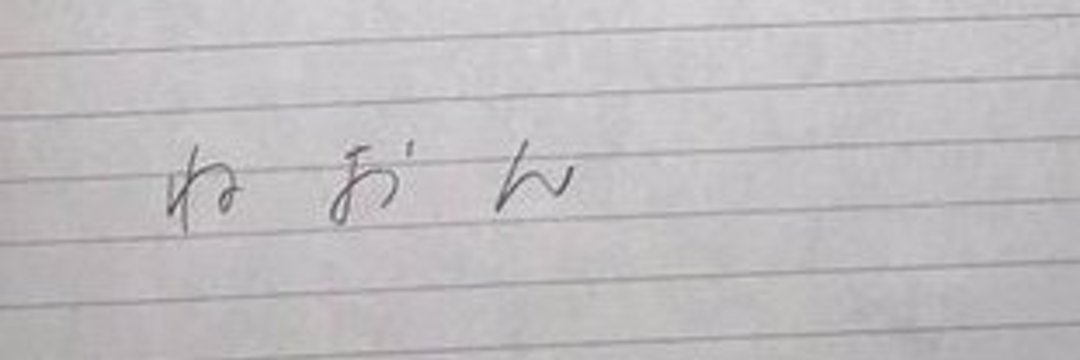 ね お ん